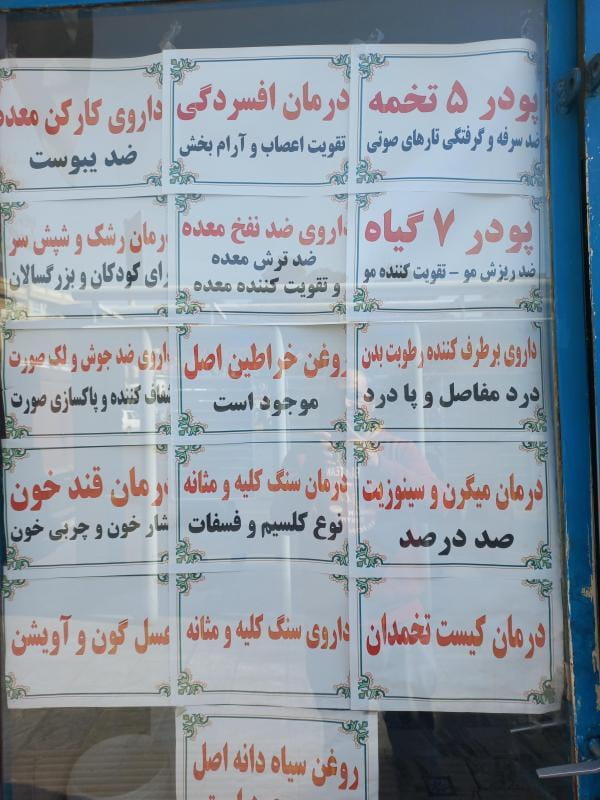 پودر ۵ تخمه
ضد سرفه و گرفتگی تارهای صوتی
درمان افسردگی
تقویت اعصاب و آرام بخش
داروی کارکن معده
ضد یبوست
پودر ۷ گیاه
ضد ریزش مو - تقویت کننده مو
داروی ضد نفخ معده
ضد ترش معده
و تقویت کننده معده
درمان رشک و شپش سر
برای کودکان و بزرگسالان
داروی برطرف کننده رطوبت بدن
درد مفاصل و پا درد
روغن خراطین اصل
موجود است
داروی ضد جوش و لک صورت
شفاف کننده و پاکسازی صورت
درمان میگرن و سینوزیت
صد درصد
درمان سنگ کلیه و مثانه
نوع کلسیم و فسفات
درمان قند خون
فشار خون و چربی خون
درمان کیست تخمدان
داروی سنگ کلیه و مثانه
عسل گون و آویشن
روغن سیاه دانه اصل